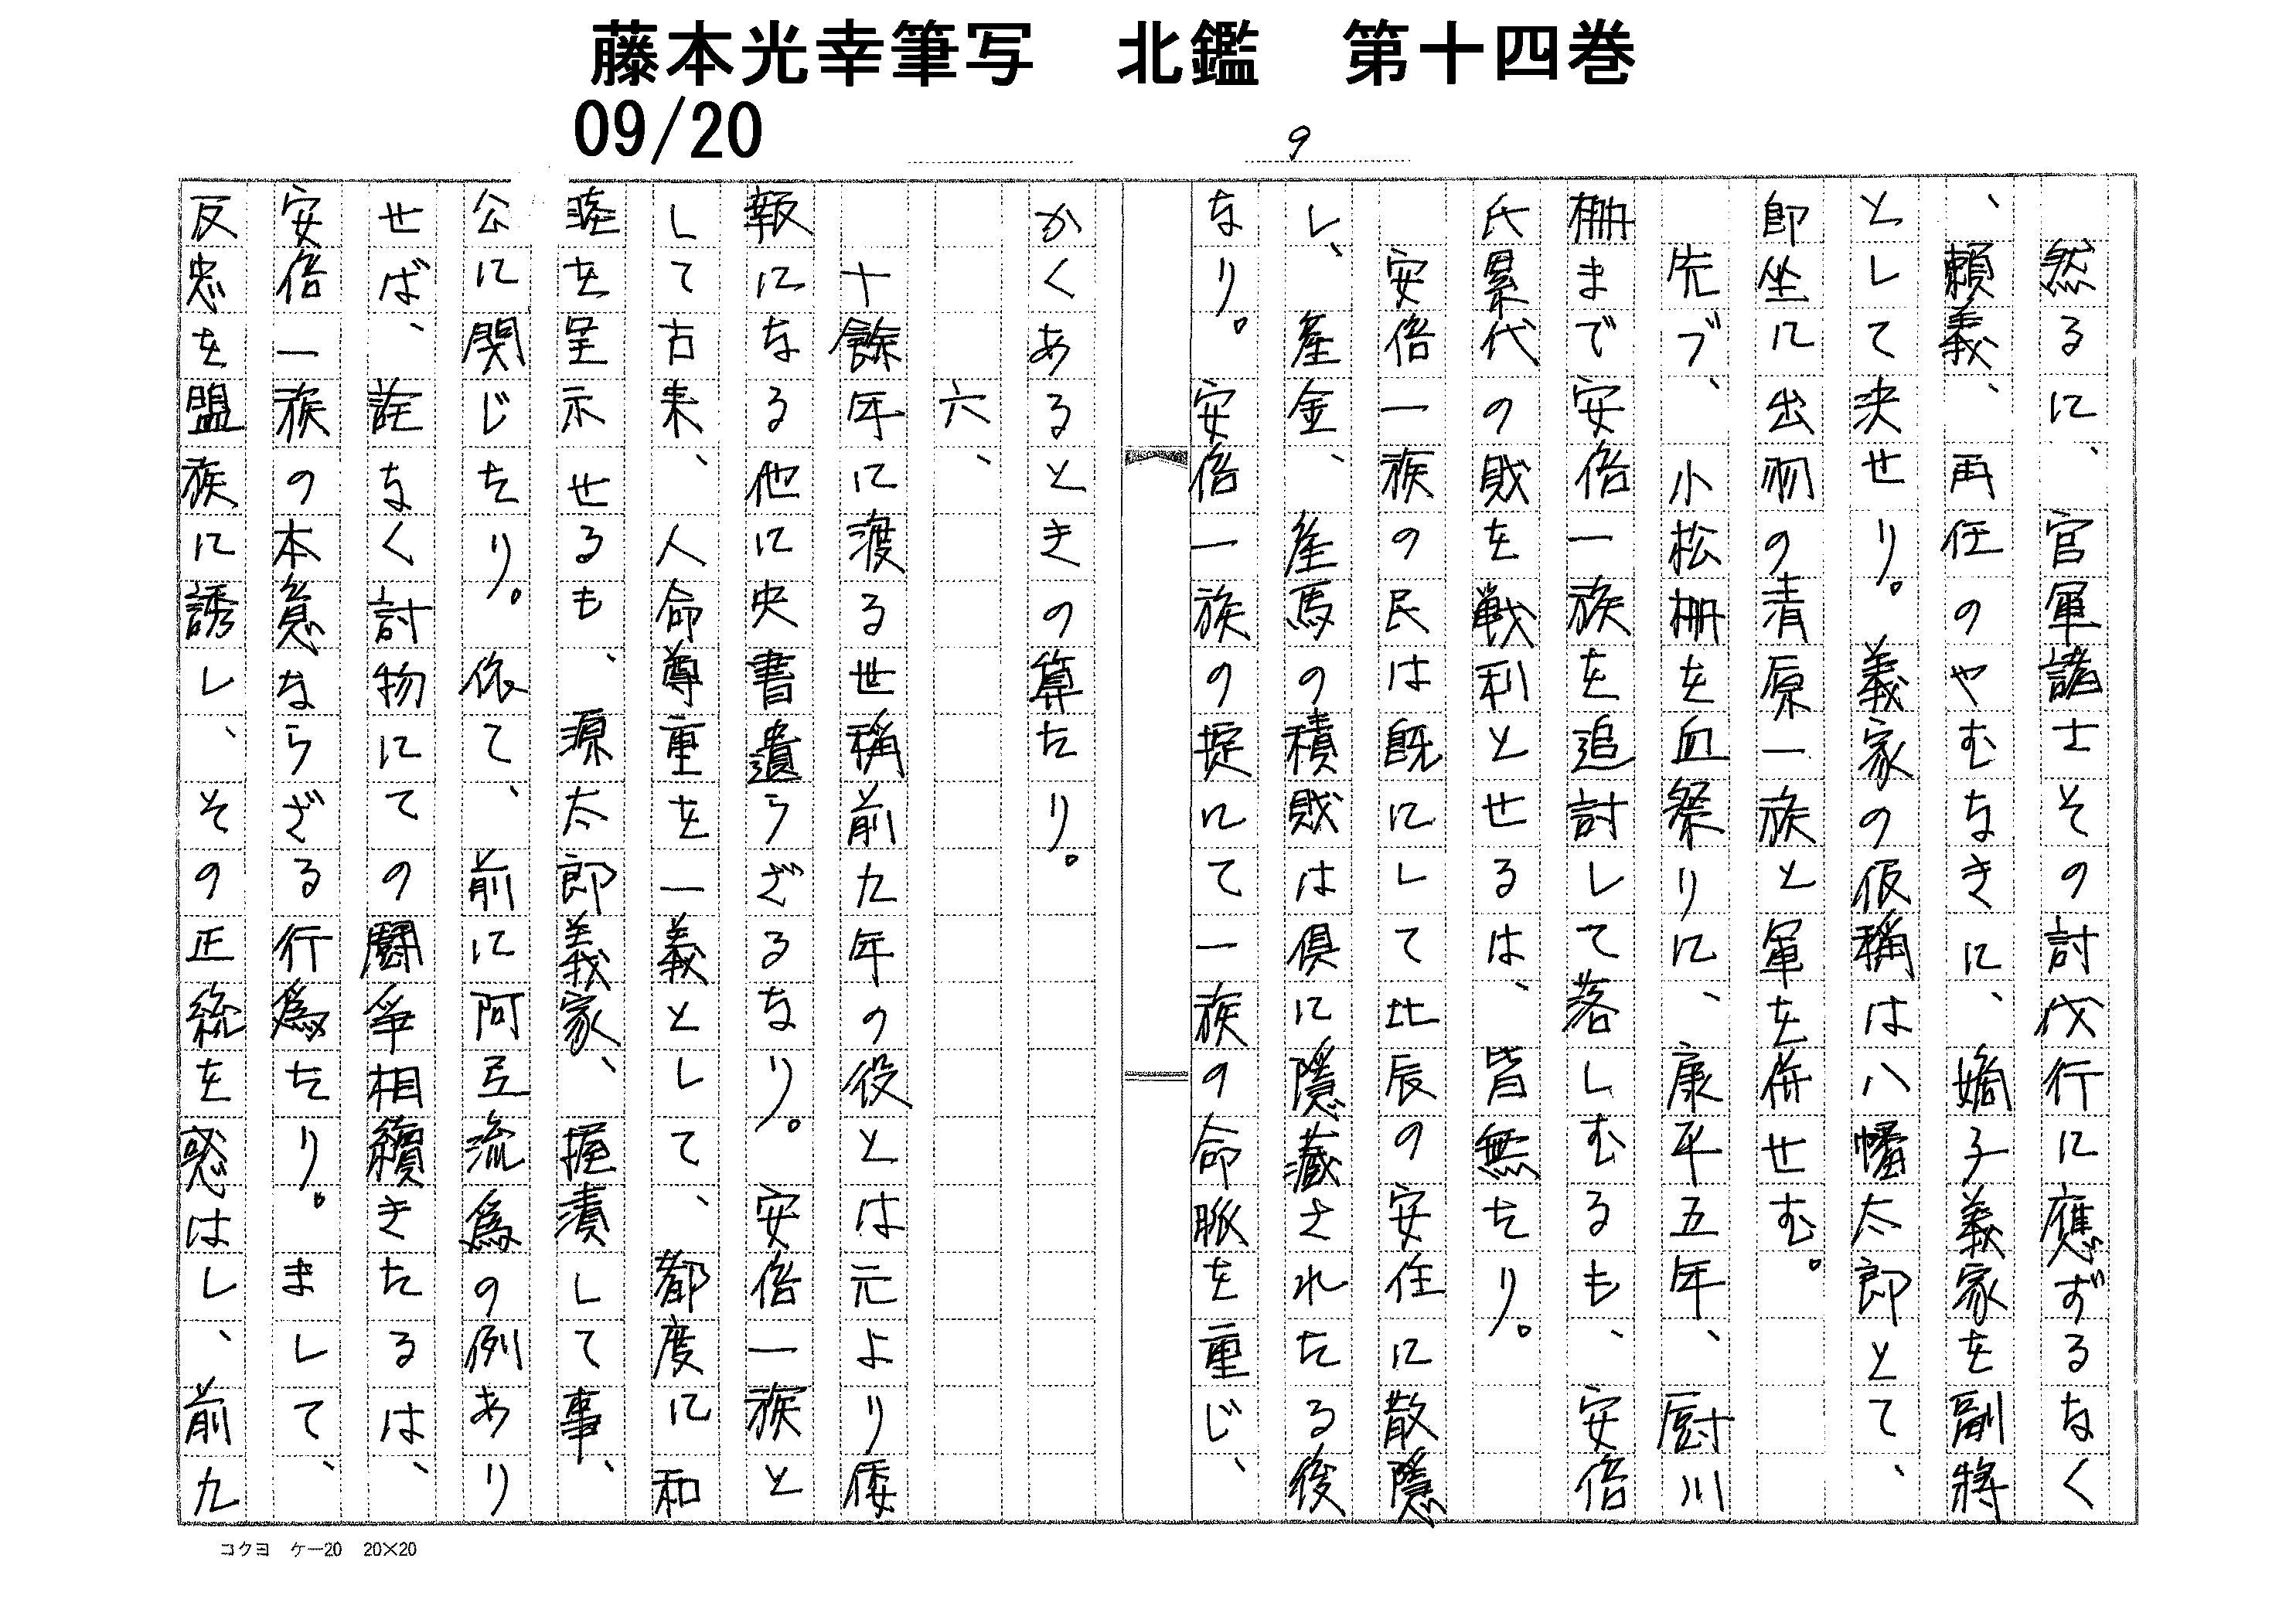 藤本光幸筆写　北鑑　第十四巻
09/20
9
然るに、官軍諸士その討伐行に應ずるなく
、頼義、再任のやむなきに、嫡子義家を副將
として決せり。義家の仮稱は八幡太郎とて、
即坐に出羽の清原一族と軍を併せむ。
先づ、小松柵を血祭りに、康平五年、厨川
柵まで安倍一族を追討して落しむるも、安倍
氏累代の財を戦利とせるは、皆無たり。
安倍一族の民は既にして比辰の安住に散隠
し、産金、産馬の積財は倶に隠藏されたる後
なり。安倍一族の掟にて一族の命脈を重じ、
かくあるときの算たり。
六、
十餘年に渡る世稱前九年の役とは元より倭
報になる他に史書遺らざるなり。安倍一族と
して古来、人命尊重を一義として、都度に和
睦を呈示せるも、源太郎義家、握潰して事、
公に関じたり。依て、前に阿弖流爲の例あり
せば、詮なく討物にての闘爭相續きたるは、
安倍一族の本意ならざる行爲たり。まして、
反忠を盟族に誘し、その正統を惑はし、前九
コクヨ　ケー20　20×20